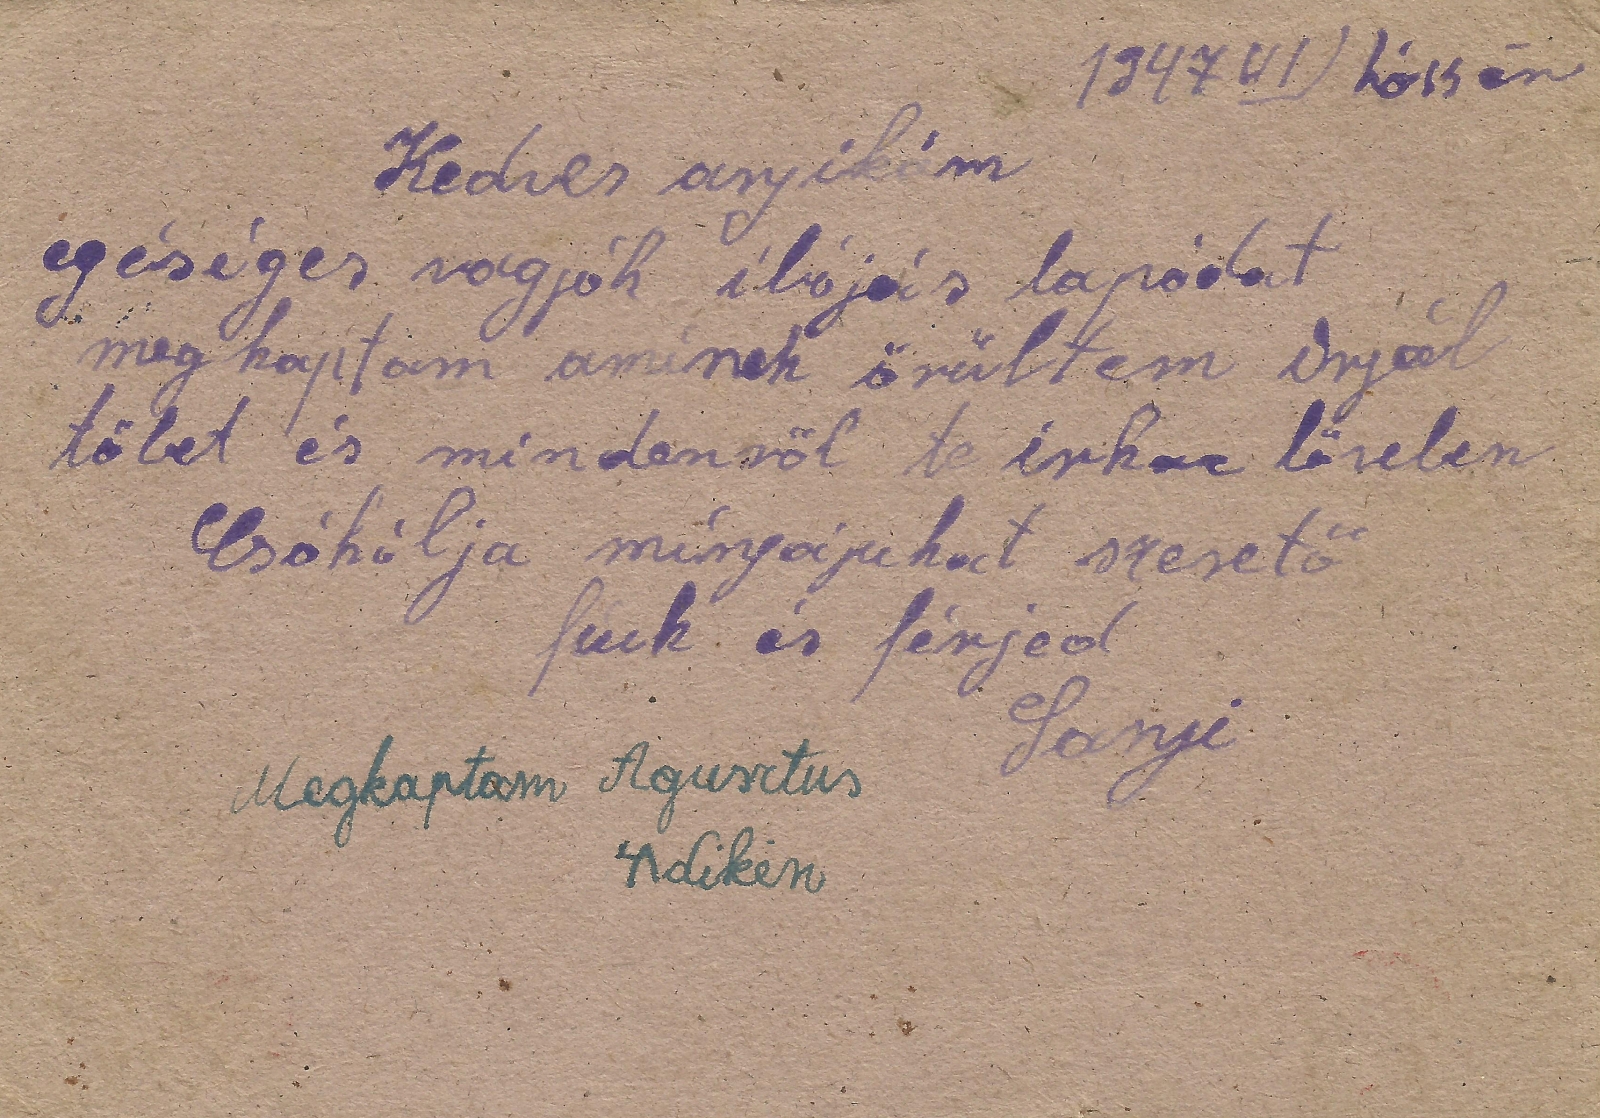 1947 VI hó 15 én
Kedves anyikám
egéséges vagjók ilójás lapódat
megkaptam aminek örültem irjál
töbet és mindenröl te irhac lövelen
Csókólja mingájukat szeretö
fiuk és férjed
Sanyi
Megkaptam Agusztus
4dikén